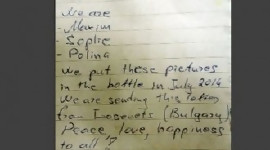 We are
- Maxim
- Sophie
- Polina
We put these pictures
in the bottle in July 2014
We are sending this
from (Bulgary)
Peace, love, happiness
to all